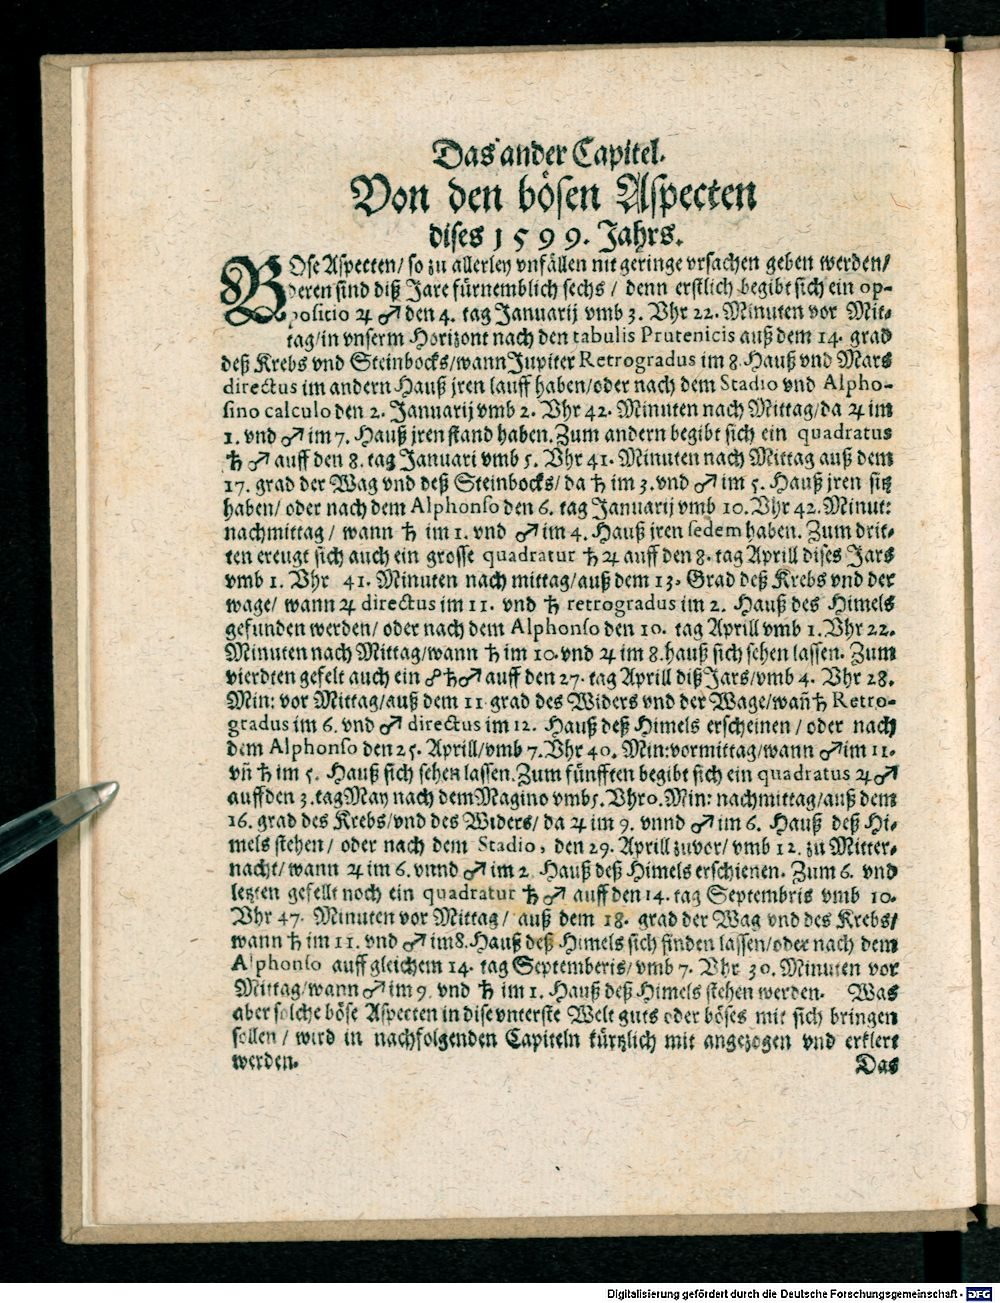 Das ander Capitel.
Von den bösen Aspecten
dises 1599. Jahrs.
BOse Aspecten/ so zu allerley vnfällen nit geringe vrsachen geben werden/
deren sind diß Jare fürnemblich sechs / denn erstlich begibt sich ein op-
positio ♃ ♂ den 4. tag Januarij vmb 3. Vhr 22. Minuten vor Mit-
tag/in vnserm Horizont nach den tabulis Prutenicis auß dem 14. grad
deß Krebs vnd Steinbocks/wann Jupiter Retrogradus im 8. Hauß vnd Mars
directus im andern Hauß jren lauff haben/oder nach dem Stadio vnd Alpho-
sino calculo den 2. Januarij vmb 2. Vhr 42. Minuten nach Mittag/da ♃ im
1. vnd ♂ im 7. Hauß jren stand haben. Zum andern begibt sich ein quadratus
♄ ♂ auff den 8. tag Januari vmb 5. Vhr 41. Minuten nach Mittag auß dem
17. grad der Wag vnd deß Steinbocks/ da ♄ im 3. vnd ♂ im 5. Hauß jren sitz
haben/ oder nach dem Alphonso den 6. tag Januarij vmb 10. Vhr 42. Minut:
nachmittag / wann ♄ im 1. vnd ♂ im 4. Hauß jren sedem haben. Zum drit-
ten ereugt sich auch ein grosse quadratur ♄ ♃ auff den 8. tag Aprill dises Jars
vmb 1. Vhr 41. Minuten nach mittag/auß dem 13. Grad deß Krebs vnd der
wage/ wann ♃ directus im 11. vnd ♄ retrogradus im 2. Hauß des Himels
gefunden werden/ oder nach dem Alphonso den 10. tag Aprill vmb 1. Vhr 22.
Minuten nach Mittag/wann ♄ im 10. vnd ♃ im 8. hauß sich sehen lassen. Zum
vierdten gefelt auch ein ☍ ♄ ♂ auff den 27. tag Aprill diß Jars/vmb 4. Vhr 28.
Min: vor Mittag/auß dem 11 grad des Widers vnd der Wage/wañ ♄ Retro-
gradus im 6. vnd ♂ directus im 12. Hauß deß Himels erscheinen / oder nach
dem Alphonso den 25. Aprill/vmb 7. Vhr 40. Min: vormittag/wann ♂ im 11.
vñ ♄ im 5. Hauß sich sehen lassen. Zum fünfften begibt sich ein quadratus ♃ ♂
auff den 3. tag May nach dem Magino vmb 5. Vhr 0. Min: nachmittag/auß dem
16. grad des Krebs/vnd des Widers/ da ♃ im 9. vnnd ♂ im 6. Hauß deß Hi-
mels stehen/ oder nach dem Stadio, den 29. Aprill zuvor/ vmb 12. zu Mitter-
nacht/wann ♃ im 6. vnnd ♂ im 2. Hauß deß Himels erschienen. Zum 6. vnd
letzten gefellt noch ein quadratur ♄ ♂ auff den 14. tag Septembris vmb 10.
Vhr 47. Minuten vor Mittag/ auß dem 18. grad der Wag vnd des Krebs/
wann ♄ im 11. vnd ♂ im 8. Hauß deß Himels sich finden lassen/oder nach dem
Alphonso auff gleichem 14. tag Septemberis/ vmb 7. Vhr 30. Minuten vor
Mittag/wann ♂ im 9. vnd ♄ im 1. Hauß deß Himels stehen werden. Was
aber solche böse Aspecten in dise vnterste Welt guts oder böses mit sich bringen
sollen / wird in nachfolgenden Capiteln kürtzlich mit angezogen vnd erklert
werden.
Das
Digitalisierung gefördert durch die Deutsche Forschungsgemeinschaft - DFG